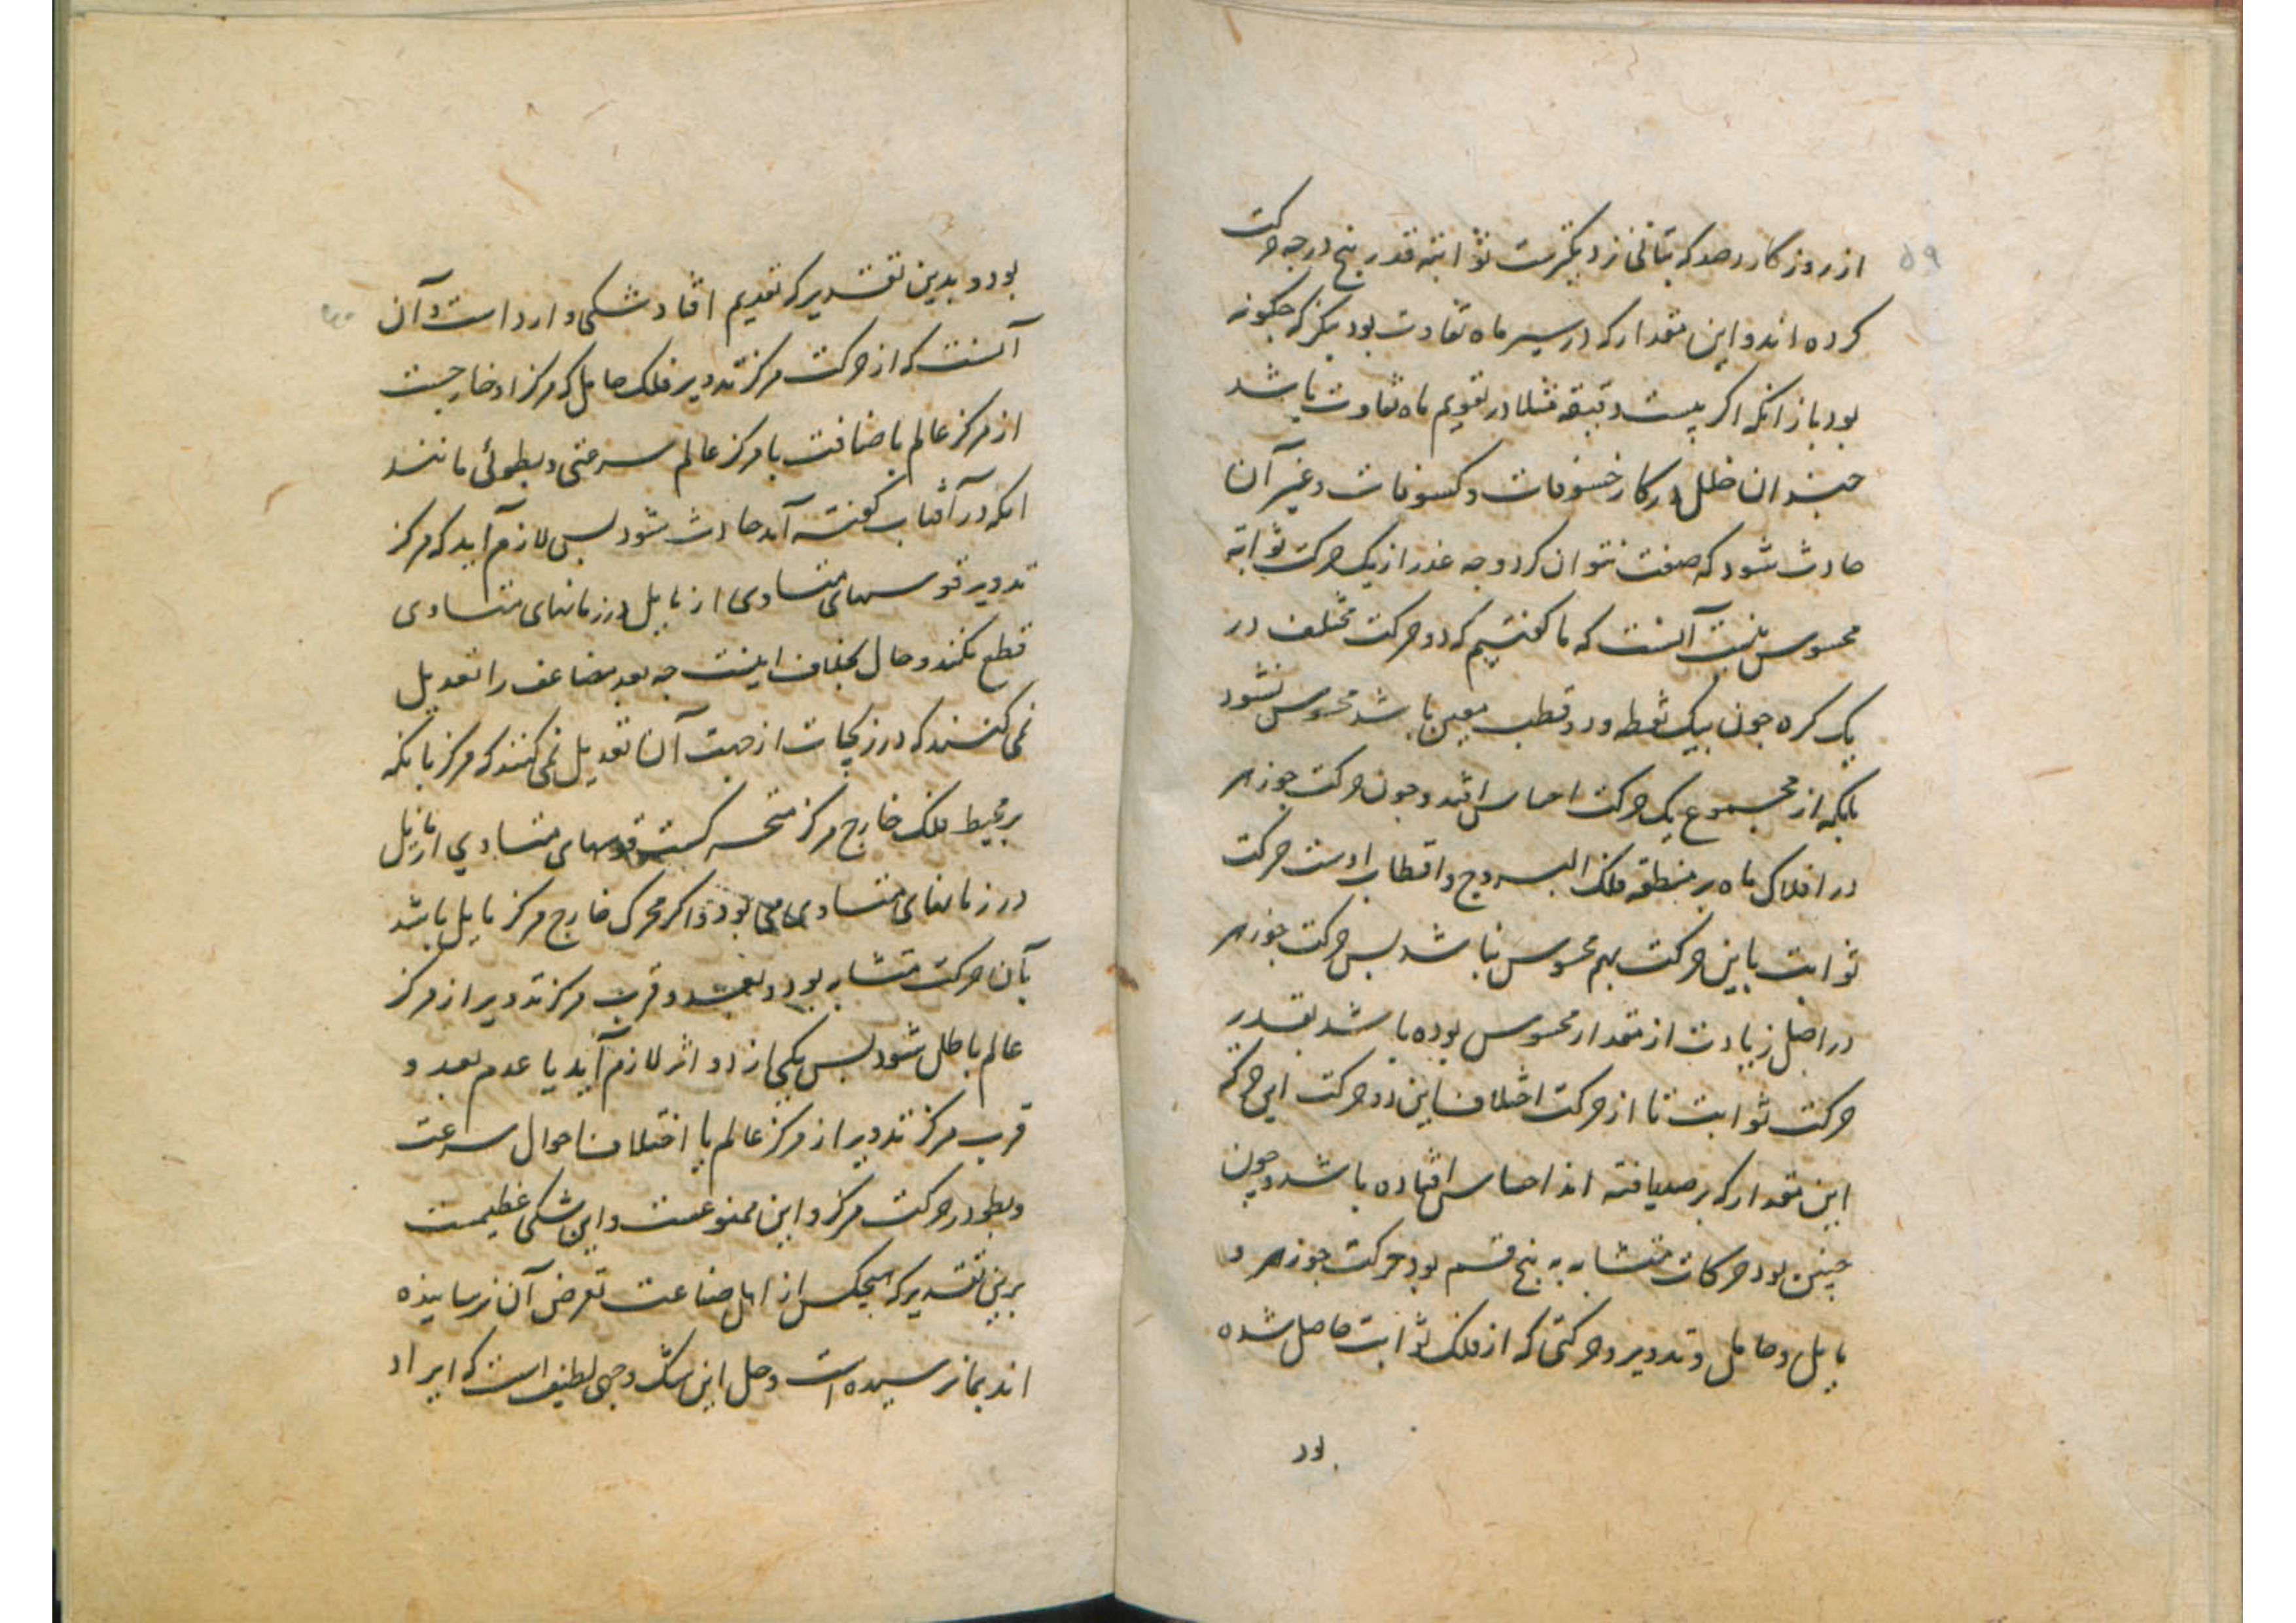 ۵۹
از روزگار رصد که بتانی نزدیکترست ثوابته قدر پنج درجه حرکت
کرده اند و این مقدار که در سیر ماه تفاوت بود بنگر که چکونه
بود باز انکه اکر بیست دقیقه مثلا در تقویم ماه تفاوت باشد
چندان خلل در کار خسوفات و کسوفات و غیر آن
حادث شود که صفت نتوان کرد وجه عذر از یک حرکت ثوابته
محسوس نیست آنست که ما کفتیم که دو حرکت مختلف در
یک کره چون بیک نقطه و دو قطب معین باشد محسوس نشود
بلکه از مجموع یک حرکت احساس افتد و چون حرکت جوزهر
در افلاک ماه بر منطقه فلک البروج و اقطاب اوست حرکت
ثوابت با این حرکت بهم محسوس نباشد پس حرکت جوزهر
در اصل زیادت از مقدار محسوس بوده باشد بقدر
حرکت ثوابت تا از حرکت اختلاف این دو حرکت این حرکه
این مقدار که برصد یافته اند احساس افتاده باشد و چون
چنین بود حرکات متشابه به پنج قسم بود حرکت جوزهر و
مایل و حامل و تدویر و حرکتی که از فلک ثوابت حاصل شده
بود
بود و بدین تقدیر که تقدیم افتاد شکی وارد است و آن
آنست که از حرکت مرکز تدویر فلک حامل که مرکز او خارجست
از مرکز عالم باضافت با مرکز عالم سرعتی و بطوئی مانند
انکه در آفتاب کفته آمد حادث شود پس لازم آید که مرکز
تدویر قوسهای متساوی از مایل در زمانهای متساوی
قطع نکند و حال بخلاف اینست چه بعد مضاعف را تعدیل
نمی کنند که در زیجات از جهت آن تعدیل نمی کنند که مرکز بانکه
بر محیط فلک خارج مرکز متحرکست قوسهای متساوی از مایل
در زمانهای متساوی می بود و اکر محرک خارج مرکز مایل باشد
بآن حرکت متشابه بود و بعد و قرب مرکز تدویر از مرکز
عالم باطل شود پس یکی از دو اثر لازم آید یا عدم بعد و
قرب مرکز تدویر از مرکز عالم یا اختلاف احوال سرعت
و بطو در حرکت مرکز و این ممنوعست و این شکی عظیمست
برین تقدیر که هیچکس از اهل صناعت تعرض آن نرسانیده
اند بما نرسیده است و حل این شک وجهی لطیف است که ایراد